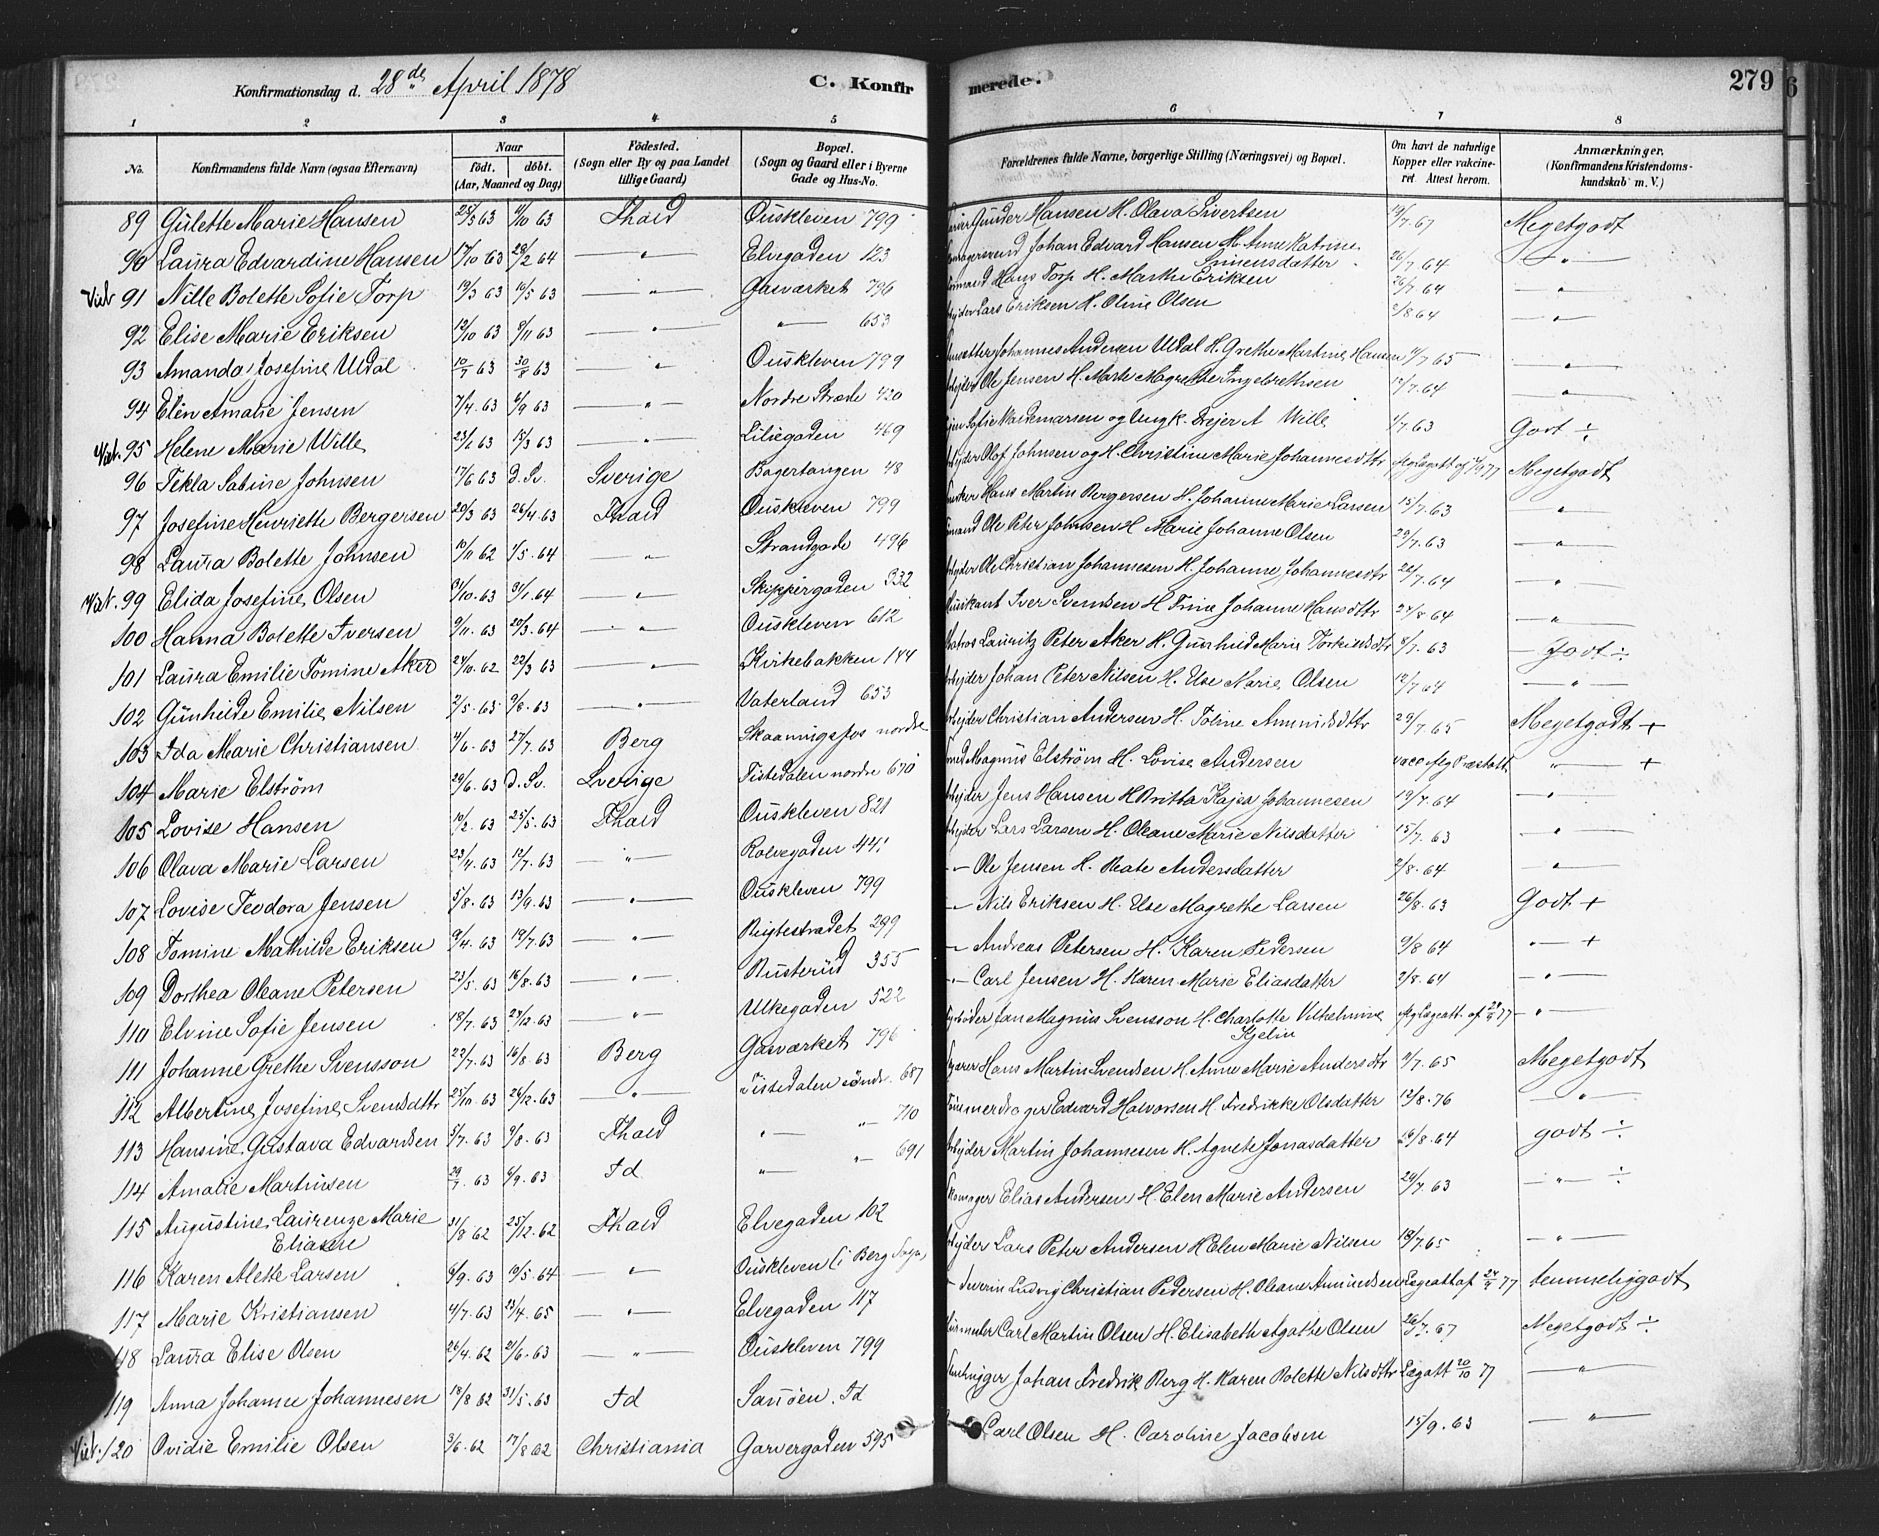 Konfirmationsdag d. 28de April 1878 C. Konfirmerede. 279
6
1 2 3 4 5 6 7 8
No. Konfirmandens fulde Navn (ogsaa Efternavn) Naar født. døbt. (Aar, Maaned og Dag) Födested. (Sogn eller By og paa Landet tillige Gaard) Bopæl. (Sogn og Gaard eller i Byerne Gade og Hus-No. Forældrenes fulde Navne, borgerlige Stilling (Næringsvei) og Bopæl. Om havt de naturlige Kopper eller vakcineret. Attest herom. Anmærkninger. (Konfirmandens Kristendomskundskab m. V.)
89 Gulette Marie Hansen 25/3 63 4/10 63 Fhald Ouskleven 799 Gunder Hansen H. Olava Sivertsen 19/7 67 Megetgodt
90 Laura Edvardine Hansen 17/10 63 28/2 64 — " — Elvegaden 123 Johan Edvard Hansen H. Anne Katrine Simensdatter 26/7 64 — " —
91 Nille Bolette Sofie Torp 19/3 63 10/5 63 — " — Gasværket 796 Hans Torp H. Marthe Eriksen 26/7 64 — " —
92 Elise Marie Eriksen 12/10 63 8/11 63 — " — — " — 653 Lars Eriksen H. Oline Olsen 2/8 64 — " —
93 Amanda Josefine Udal 10/7 63 30/8 63 — " — Ouskleven 799 Johannes Andersen Udal H. Grethe Martine Hansen 4/7 65 — " —
94 Elen Amalie Jensen 7/4 63 6/9 63 — " — Nordre Stræde 420 Ole Jensen H. Marte Magrethe Ingebrethsen 12/7 64 — " —
95 Helene Marie Wille 23/1 63 15/3 63 — " — Liliegaden 469 Sofie Waldemarsen og Ungk. Drejer A Wille 4/7 63 Godt ÷
96 Tekla Sabine Johnsen 17/6 63 D. Sv. Sverige Bagertangen 48 Olof Johnsen og H. Christine Marie Johannesdtr Megetgodt
97 Josefine Henriette Bergersen 20/3 63 26/4 63 Fhald Ouskleven 799 Hans Martin Bergersen H. Johanne Marie Larsen 15/7 63 — " —
98 Laura Bolette Johnsen 10/11 62 1/5 64 — " — Strandgade 496 Ole Peter Johnsen H Marie Johanne Olsen 29/7 63 — " —
99 Elida Josefine Olsen 31/10 63 31/1 64 — " — Skippergaden 332 Ole Christian Johannesen H. Johanne Johannesdtr 26/7 64 — " —
100 Hanna Bolette Iversen 9/11 63 20/3 64 — " — Ouskleven 612 Iver Svendsen H Trine Johanne Hansdtr 24/8 64 — " —
101 Laura Emilie Tomine Aker 24/10 62 22/3 63 — " — Kirkebakken 144 Lauritz Peter Aker H. Gunhild Marie Torkildsdtr 8/7 63 — Godt ÷
102 Gunhilde Emilie Nilsen 2/5 63 9/8 63 — " — Vaterland 653 Johan Peter Nilsen H. Else Marie Olsen 12/7 64 — " —
103 Ida Marie Christiansen 4/6 63 27/7 63 Berg Skaaningsfos nordre Christian Andersen H. Toline 29/7 65 Megetgodt +
104 Marie Elström 29/6 63 D. Sv. Sverige Tistedalen nordre 670 Magnus Elström H. Lovise Andersen — " — +
105 Lovise Hansen 10/2 63 25/5 63 Fhald Ouskleven 821 Jens Hansen H Britta Kajsa Johannesen 19/7 64 — " —
106 Olava Marie Larsen 23/4 63 12/7 63 — " — Rolvegaden 441 Lars Larsen H. Oleane Marie Nilsdatter 15/7 63 — " —
107 Lovise Teodora Jensen 5/8 63 13/9 63 — " — Ouskleven 799 — Ole Jensen H. Beate Andersdatter 2/8 64 — " —
108 Tomine Mathilde Eriksen 9/4 63 19/7 63 — " — Rigtestrædet 299 — Nils Eriksen H. Else Magrethe Larsen 26/8 63 Godt +
109 Dorthea Oleane Petersen 23/5 63 16/8 63 — " — Busterud 355 — Andreas Petersen H. Karen Pedersen 9/8 64 — " — +
110 Elvine Sofie Jensen 18/7 63 27/12 63 — " — Ulkegaden 522 — Carl Jensen H. Karen Marie Eliasdatter 2/8 64 — " —
111 Johanne Grethe Svensson 22/7 63 16/8 63 Berg Gasværket 796 Jan Magnus Svensson H. Charlotte Vilhelmine Kjelin — " —
112 Albertine Josefine Svendsdtr 25/10 63 26/12 63 — " — Tistedalen søndr. 687 Hans Martin Svendsen H. Anne Marie Andersdtr 11/7 65 Megetgodt
113 Hansine Gustava Edvardsen 5/7 63 9/8 63 Fhald — " — 710 Edvard Halvorsen H. Fredrikke Olsdatter 12/8 76 — " —
114 Amalie Martinsen 29/7 63 6/9 63 Id — " — 691 Martin Johannesen H. Agnete Jonasdatter 16/8 64 godt ÷
115 Augustine Laurenze Marie Eliasen 31/8 62 25/12 62 Fhald Elvegaden 102 Elias Andersen H. Elen Marie Andersen 20/7 63 — " — ÷
116 Karen Alette Larsen 6/9 63 10/5 64 — " — Ouskleven (i Berg Sogn) Lars Peter Andersen H Elen Marie Nilsen 18/7 65 — " —
117 Marie Kristiansen 4/7 63 23/4 65 — " — Elvegaden 117 Severin Ludvig Christian Pedersen H. Oleane Amundsen Lægeatt af 24/9 77 temmeliggodt
118 Laura Elise Olsen 26/4 62 21/6 63 — " — Ouskleven 799 Carl Martin Olsen H. Elisabeth Agathe Olsen 26/7 67 Megetgodt ÷
119 Anna Johanne Johannesen 18/8 62 31/5 63 Id Sauøen. Id Johan Fredrik Berg H. Karen Bolette Nilsdtr Lægatt 20/10 77 — " —
120 Ovidie Emilie Olsen 3/6 62 17/8 62 Christiania Garvergaden 595 Carl Olsen H. Caroline Jacobsen 15/9 63 — " —